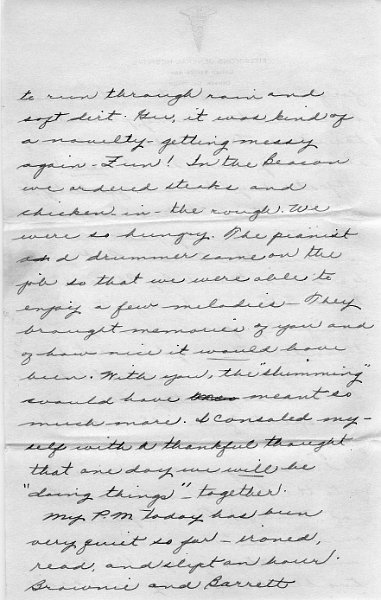 to run through rain and
soft dirt. Gee, it was kind of
a novelty - getting messy
again - Fun! In the Beacon
we ordered steaks and
chicken in - the rough. We
were so hungry. The pianist
and drummer came on the
job so that we were able to
enjoy a few melodies - They
brought memories of you and
of how nice it would have
been. With you, the "shimming"
would have meant so
much more. I consoled my-
self with a thankful thought
that one day we will be
"doing things" - together.
My P.M. today has been
very quiet so far - ironed,
read, and slept an hour.
Brownie and Barrett